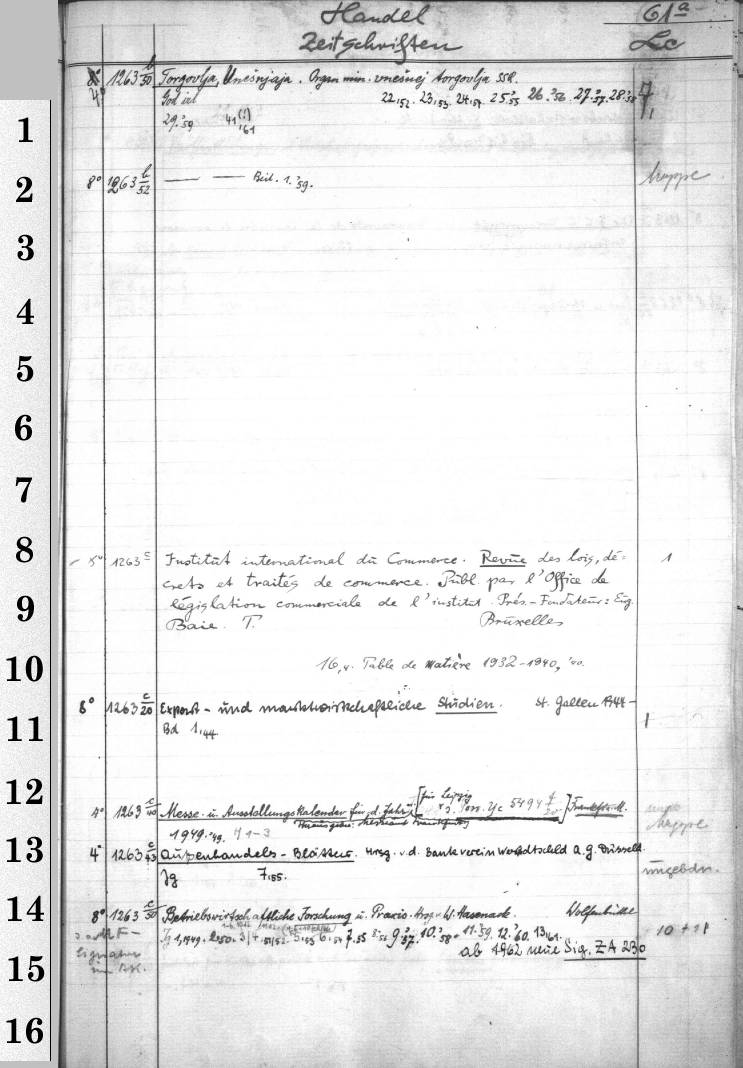 Handel 61ª
Zeitschriften Lc
8° 4° 1263 b/50 Torgovlja, Unešnjaja. Organ min. vnešnej torgovlja SSR. 7,
God izd. 22,52. 23,53. 24,54. 25,55 26,56. 27,57. 28,58
29,59 41(!)61
1
8° 1263 b/52 — — Beil. 1,59. Mappe
2
3
4
5
6
7
8
1263 c Institut international du Commerce. Revue des lois, dé- 1
crets et traités de commerce. Publ. par l'Office de
9
législation commerciale de l'institut. Prés.-Fondateur: Eug.
Baie. T. Bruxelles
10
16,v. Table de Matière 1932-1940, '40.
8° 1263 c/20 Export- und marktwirtschaftliche Studien. St. Gallen 1944- 1
11
Bd 1,44
12
für Leipzig
4° 1263 c/40 Messe- u. Ausstellungskalender für d. Jahr Yc 5494 f/20 Frankfurt M. Mappe
1949,49.
13
4° 1263 c/43 Außenhandels-Blätter. Hrsg. v. d. Bankverein Westdtschld A.G. Düsseld. ungebdn.
Jg 7,55.
14
8° 1263 c/50 Betriebswirtschaftliche Forschung u. Praxis. Hrsg. v. W. Hasenack. Wolfenbüttel
Jg 1,1949. 2,50. 3/4,51/52. 5,53 6,54 7,55 8,56 9,57. 10,58. 11,59. 12,60. 13,61. 10 + 11
ab 1962 neue Sig. ZA 230
15
16